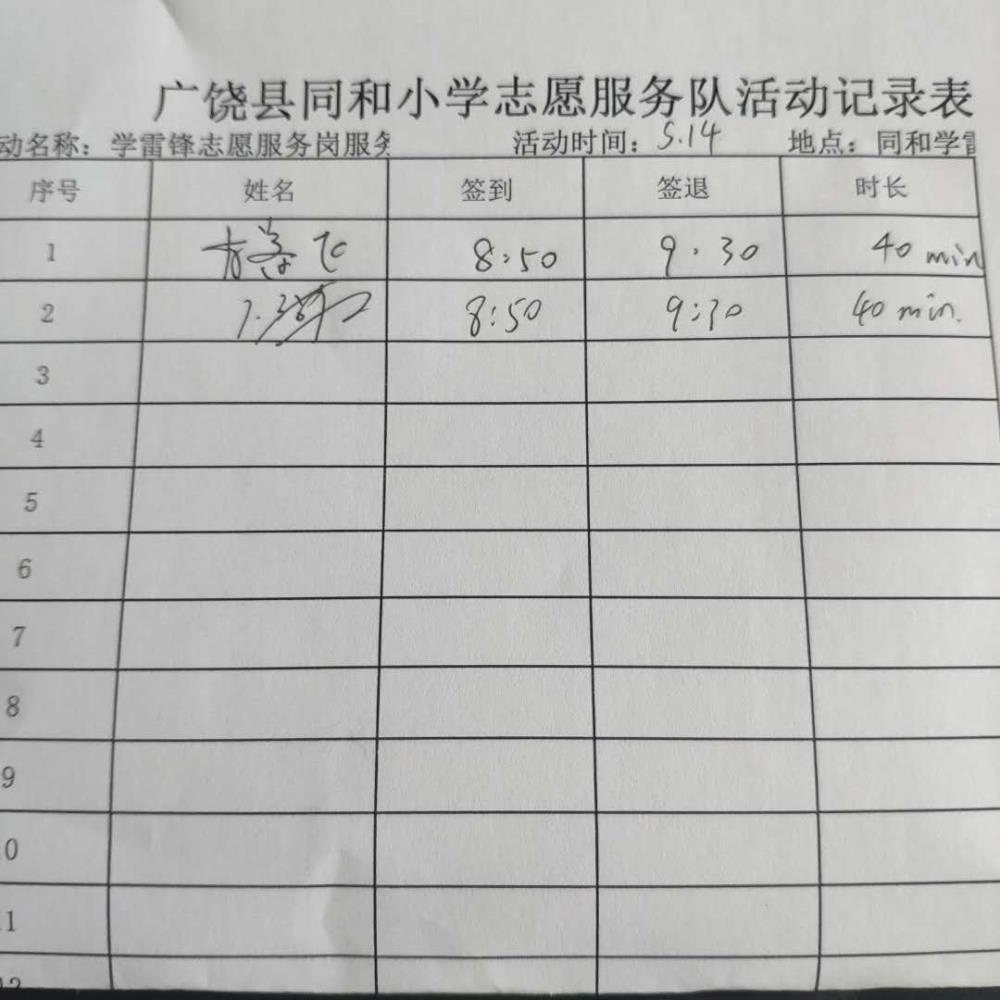 广饶县同和小学志愿服务队活动记录表
动名称：学雷锋志愿服务岗服务 活动时间：5.14 地点：同和学雷
序号 姓名 签到 签退 时长
1 8:50 9:30 40 min
2 8:50 9:30 40 min.
3
4
5
6
7
8
9
0
1
12